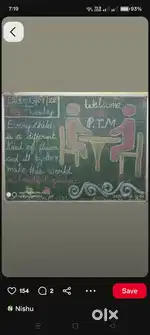 7:19
93%
Welcome
P.T.M
Every child
is a different
kind of flower
and all together
make this world
154
2
Save
Nishu
olx